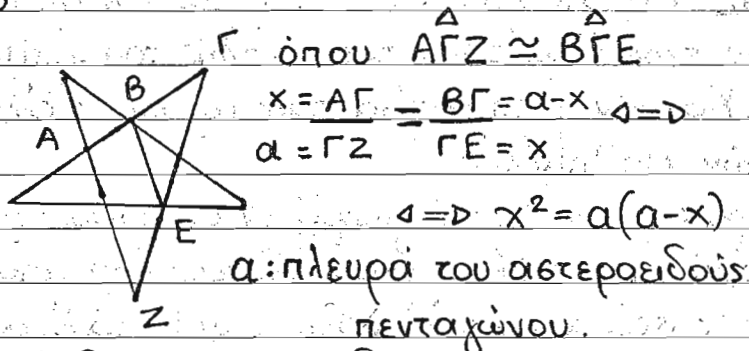 Γ όπου ΑΓ̂Ζ ≃ ΒΓ̂Ε
Β
Α
x = ΑΓ / α = ΓΖ = ΒΓ = α-x / ΓΕ = x ⟺
⟺ x² = α(α-x)
Ε
α: πλευρά του αστεροειδούς
Ζ
πενταγώνου.